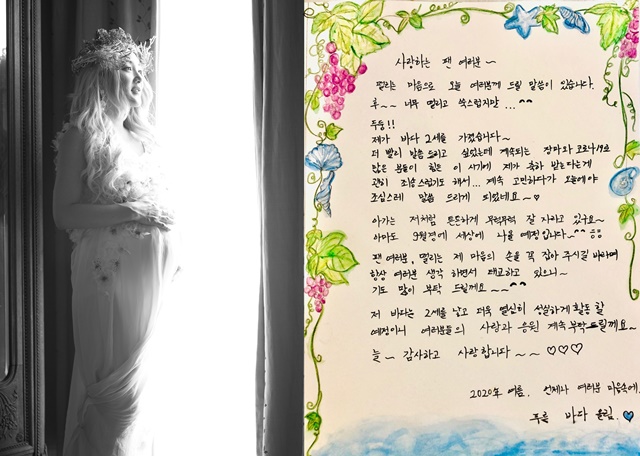 사랑하는 팬 여러분~
떨리는 마음으로 오늘 여러분께 드릴 말씀이 있습니다.
후~~ 너무 떨리고 쑥스럽지만 ... ^^
두둥!!
제가 바다 2세를 가졌습니다~
더 빨리 말씀 드리고 싶었는데 계속되는 장마와 코로나19로
많은 분들이 힘든 이 시기에 제가 축하 받는다는게
괜히 죄송스럽기도 해서... 계속 고민하다가 오늘에야
조심스레 말씀 드리게 되었네요~♡
아가는 저처럼 튼튼하게 무럭무럭 잘 자라고 있구요~
아마도 9월경에 세상에 나올 예정입니다~^^
팬 여러분, 떨리는 제 마음의 손을 꼭 잡아 주시길 바라며
항상 여러분 생각 하면서 태교하고 있으니~
기도 많이 부탁 드릴께요~~^^
저 바다는 2세를 낳고 더욱 열심히 성실하게 활동 할
예정이니 여러분들의 사랑과 응원 계속 부탁드릴께요~
늘~ 감사하고 사랑합니다~~♡♡♡
2020年 여름. 언제나 여러분 마음속에
푸를 바다 올림.